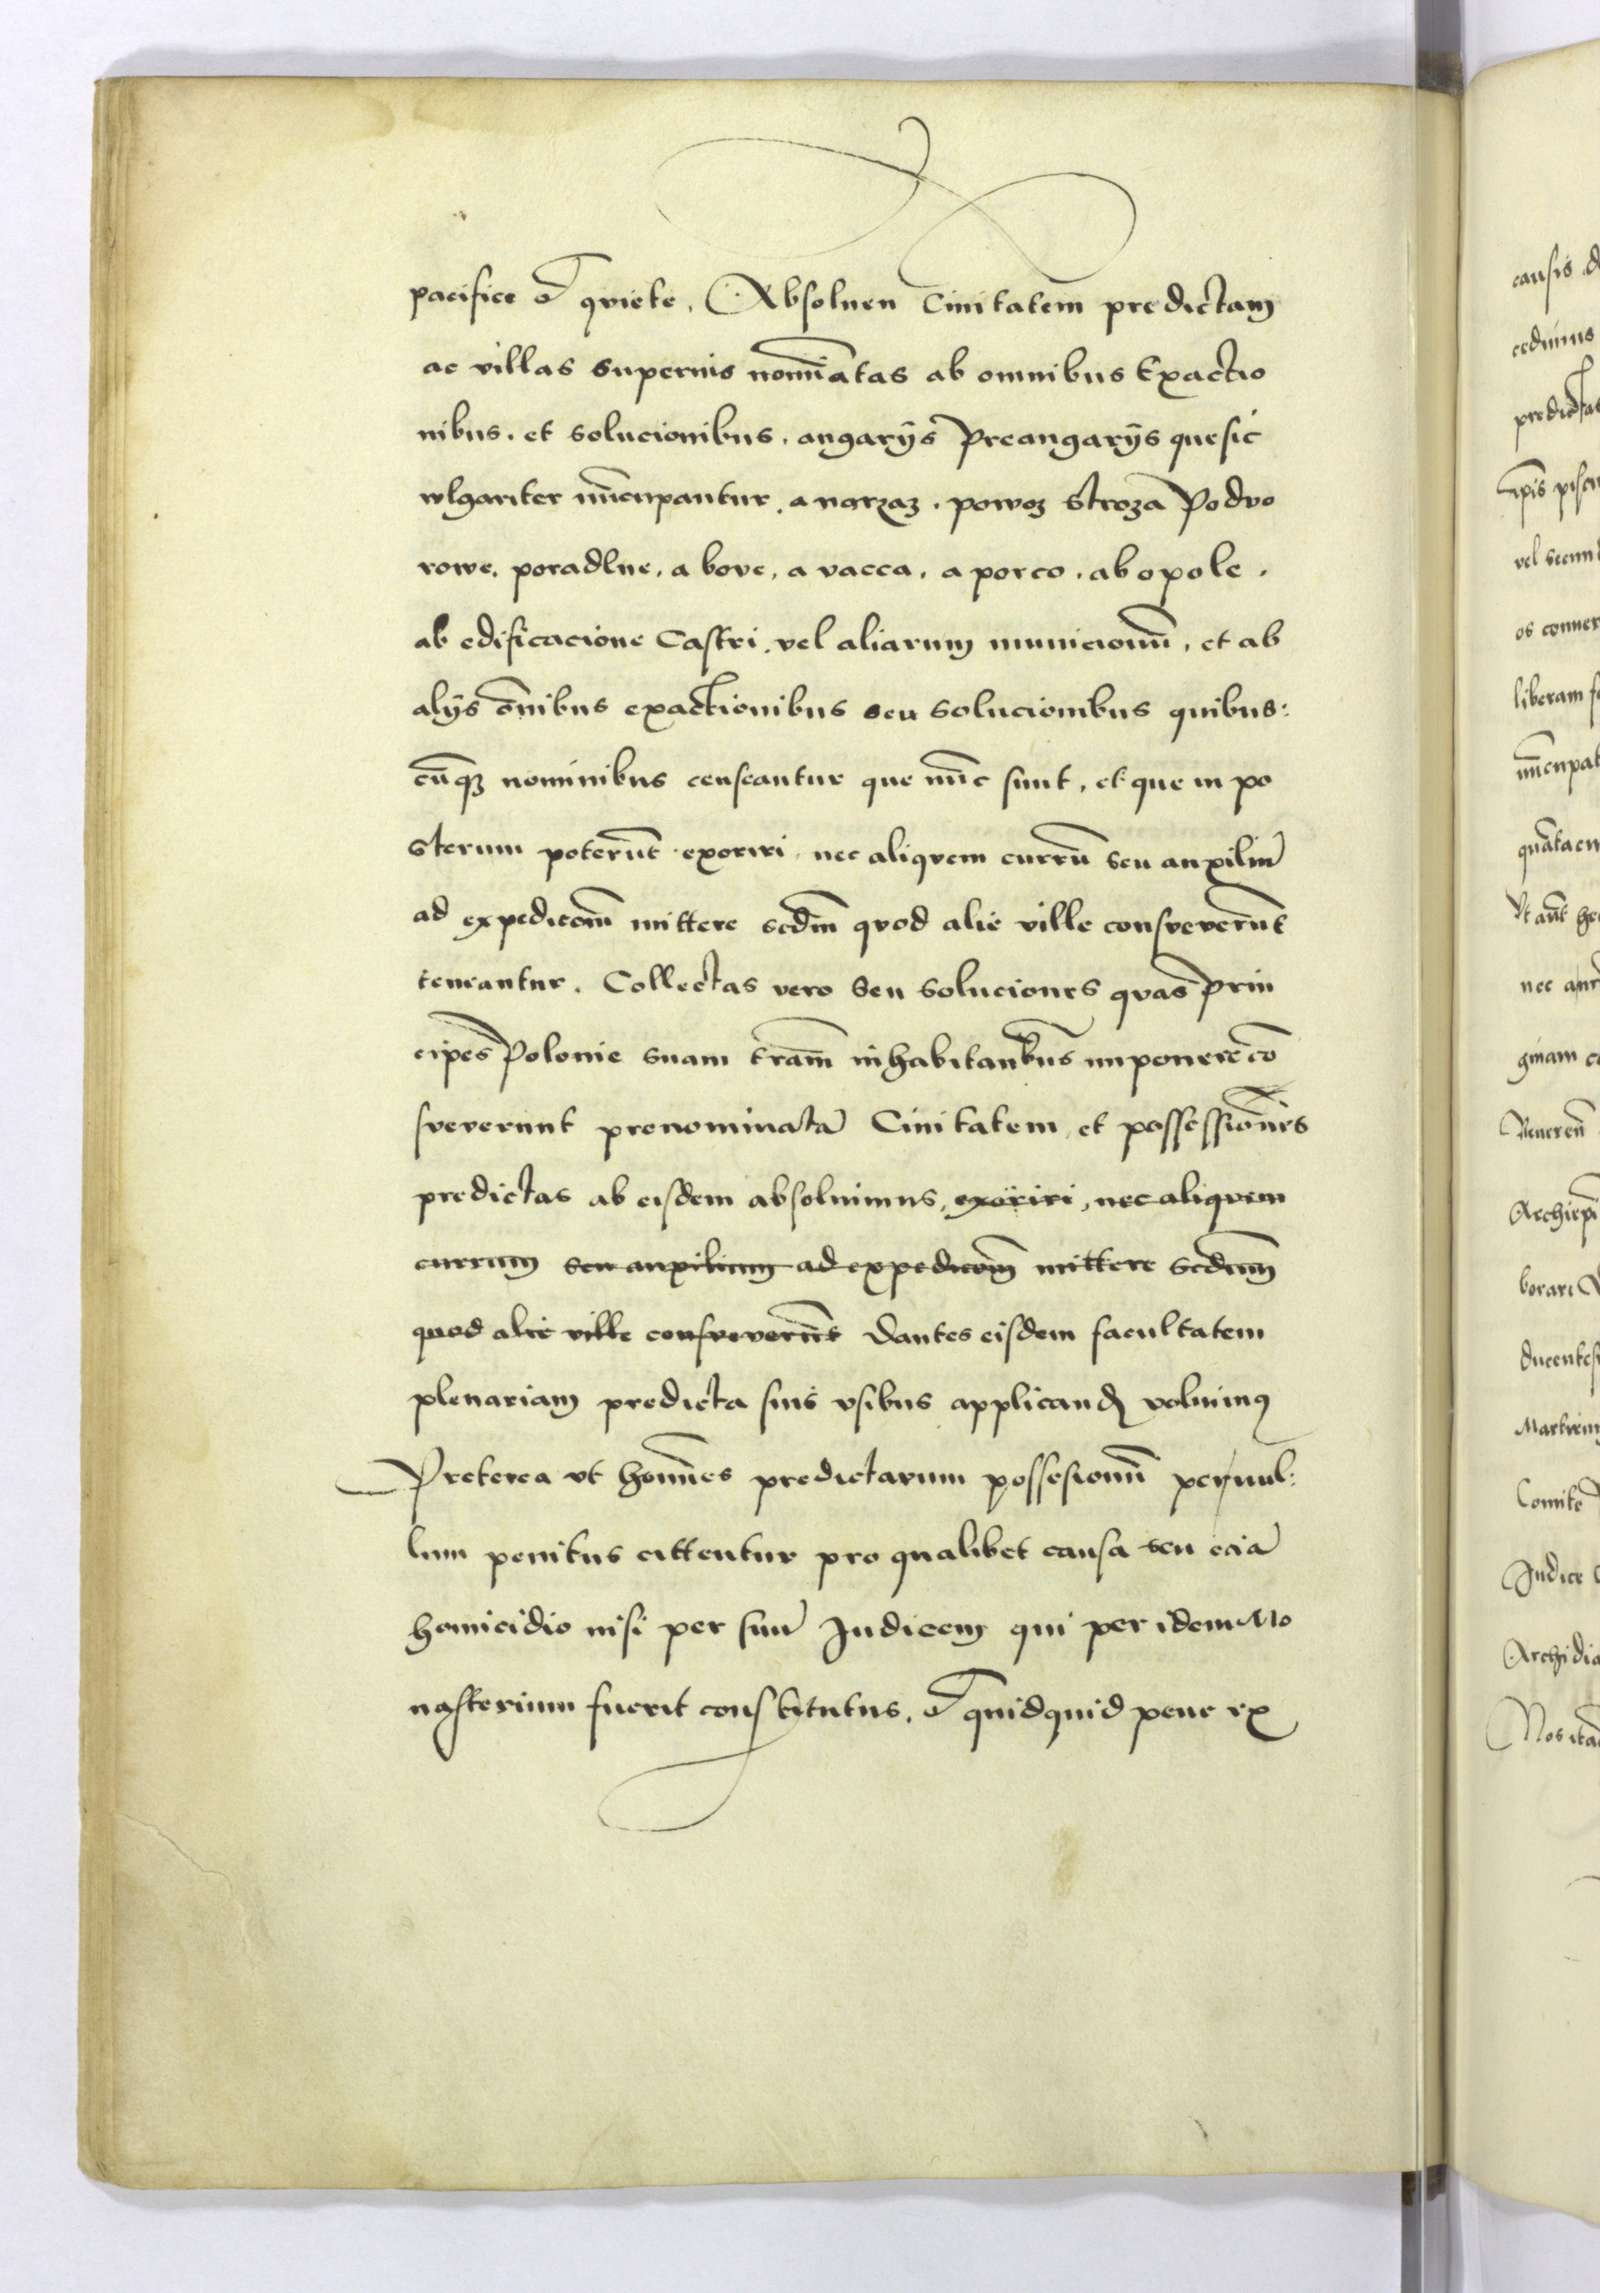 pacifice et qviete. Absoluen Ciuitatem predictam
ac villas supernis nomīatas ab omnibus Exactio
nibus. et solucionibus. angarijs Preangarijs que sic
wlgariter nūcupantur. a narzaz. powoz stroza Podvo
rowe. poradlne. a bove. a vacca. a porco. ab opole.
ab edificacione Castri. vel aliarum municionū. et ab
alijs ōnibus exactionibus seu solucionibus quibus:
cūqꝫ nominibus censeantur que nūc sunt. et que in po
sterum poterūt exoriri nec aliqvem currū seu auxiliū
ad expedicōm mittere scdm̄ qvod alie ville consveverūt
teneantur. Collectas vero seu soluciones qvas Prin
cipes Polonie suam tr̄am inhabitantibus imponere cō
sveverunt prenominatā Ciuitatem et possessiones
predictas ab eisdem absoluimus. exoriri, nec aliqvem
currum seu auxilium ad expedicōm mittere scdum̄
quod alie ville consveverūt Dantes eisdem facultatem
plenariam predicta suis vsibus applicandꝭ voluimꝰ
Preterea vt homīes predictarum possesionū per nul:
lum penitus cittentur pro qualibet causa seu eciā
homicidio nisi per suū Judicem qui per idem Mo
nasterium fuerit constitutus. et quidquid pene ex
causis
cedimus
vel
liberam
nec
Comite
Judice